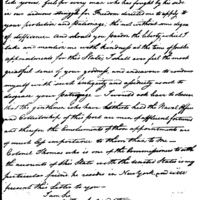 like yours, felt for every man who has fought by his side
in our arduous struggle for Freedom decided me to apply to
your protection and patronage, tho not without some degree
of diffidence. And should you pardon the liberty which I
take and mention me with kindness at the time of future
appointments for this State, I shall ever feel the most
grateful sense of your goodness, and endeavor to conduct
myself with such integrity and fidelity as to
deserve your patronage. I would ask leave to observe
that the gentlemen who have hitherto held the Naval Office
and Collectorship of this port are men of different fortunes
and therefore the emoluments of these appointments are
of much less importance to them than to me.
Colonel Thomas who is one of the Commissioners to settle
the accounts of this State with the United States is my
particular friend he resides in New York and will
present this Letter to you
I am Sir